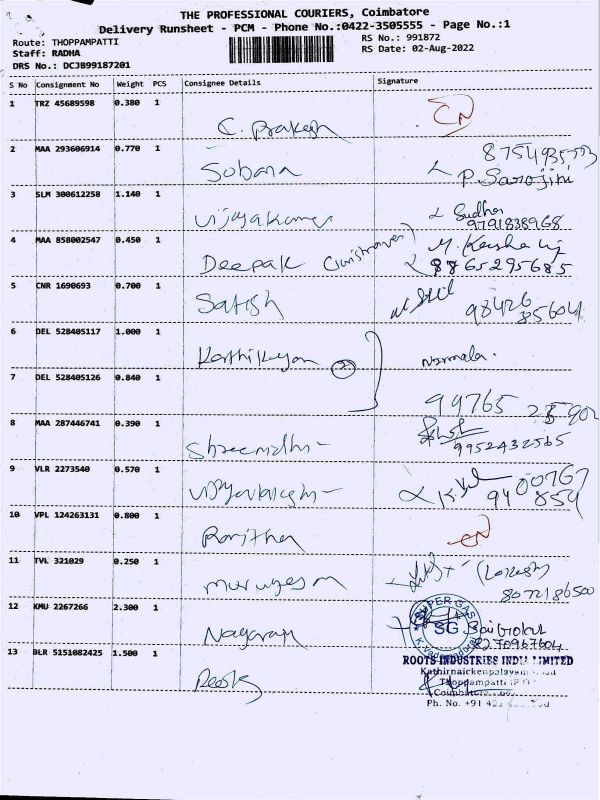 THE PROFESSIONAL COURIERS, Coimbatore
Delivery Runsheet - PCM - Phone No.:0422-3505555 - Page No.:1
Route: THOPPAMPATTI
RS No.: 991872
Staff: RADHA
RS Date: 02-Aug-2022
DRS No.: DCJB99187201
S No Consignment No Weight PCS Consignee Details Signature
1 TRZ 45689598 0.380 1
C. Prakash
2 MAA 293606914 0.770 1
Subana
P. Sarojini
3 SLM 300612258 1.140 1
Vijayakumar Sudha
9791838968
4 MAA 858002547 0.450 1
Deepak
8865295685
5 CNR 1690693 0.700 1
Satish
98426
85604
6 DEL 528405117 1.000 1
Karthikeyan 2 Normala.
7 DEL 528405126 0.840 1
99765
8 MAA 287446741 0.390 1
Shreenidhi -
9952432565
9 VLR 2273540 0.570 1
9400767
854
10 VPL 124263131 0.800 1
Ranjitha
11 TVL 321029 0.250 1
Murugesan (Lokesh)
8072186500
12 KMU 2267266 2.300 1
Nagaraj
SUPER GAS
SG
Sai Gokul
8270967604
13 BLR 5151082425 1.500 1
ROOTS INDUSTRIES INDIA LIMITED
Kathirnaickenpalayam
Thoppampatti
Coimbatore
Ph. No. +91 422